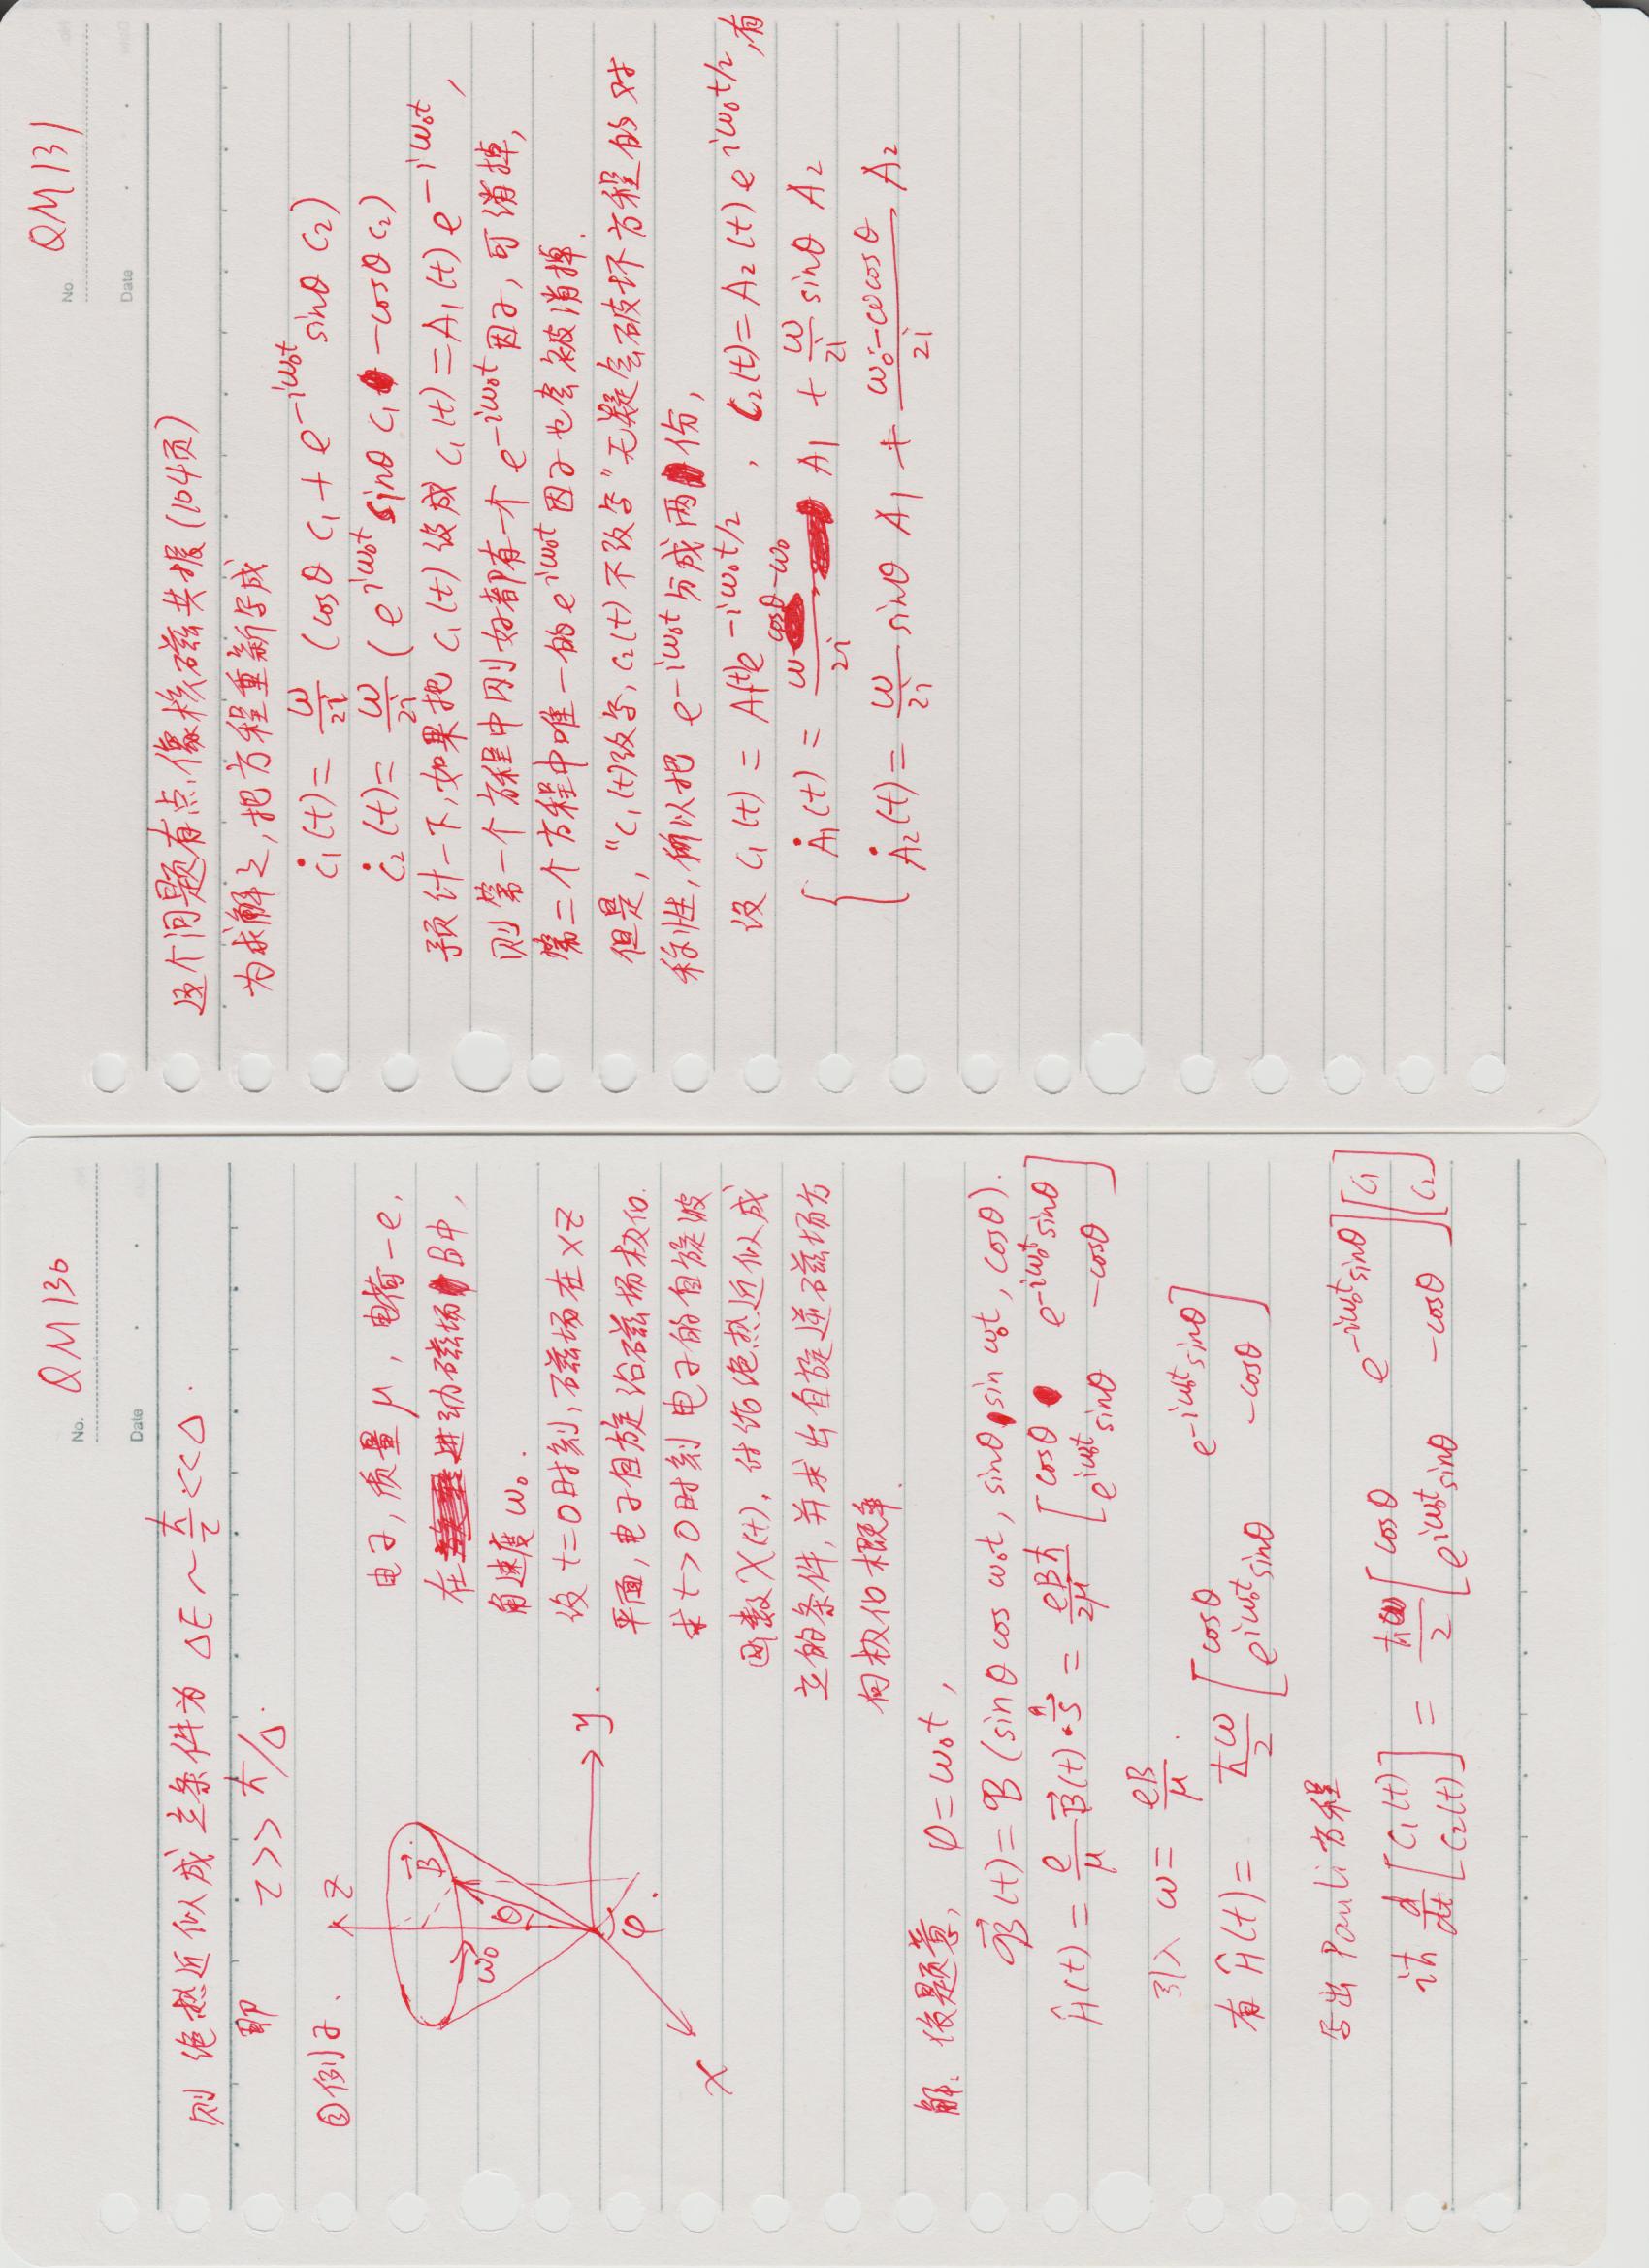 No. QM130
Date
则绝热近似成立条件为 ΔE ~ ħ/τ << Δ.
即 τ >> ħ/Δ.
③例子.
z
B⃗
ω₀
θ
y
φ
x
电子, 质量 μ, 电荷 -e,
在进动磁场B中,
角速度 ω₀.
设 t=0时刻, 磁场在xz
平面, 电子自旋沿磁场极化.
求t>0时刻电子的自旋波
函数χ(t), 讨论绝热近似成
立的条件, 并求出自旋逆磁场方
向极化概率.
解: 依题意, φ=ω₀t,
B⃗(t) = B (sinθ cos ω₀t, sinθ sin ω₀t, cosθ).
Ĥ(t) = e/μ B⃗(t)·S⃗̂ = eBħ/2μ [cosθ e^{-iω₀t}sinθ; e^{iω₀t}sinθ -cosθ]
引入 ω = eB/μ.
有 Ĥ(t) = ħω/2 [cosθ e^{-iω₀t}sinθ; e^{iω₀t}sinθ -cosθ]
写出 Pauli方程
iħ d/dt [c₁(t); c₂(t)] = ħω/2 [cosθ e^{-iω₀t}sinθ; e^{iω₀t}sinθ -cosθ] [c₁; c₂]
No QM131
Date
这个问题有点像核磁共振(104页)
为求解之, 把方程重新写成
ċ₁(t) = ω/2i (cosθ c₁ + e^{-iω₀t} sinθ c₂)
ċ₂(t) = ω/2i (e^{iω₀t} sinθ c₁ - cosθ c₂)
预计一下, 如果把 c₁(t) 设成 c₁(t) = A₁(t) e^{-iω₀t},
则第一个方程中刚好都有一个 e^{-iω₀t} 因子, 可消掉,
第二个方程中唯一的 e^{iω₀t} 因子也会被消掉.
但是, "c₁(t)改写, c₂(t)不改写"无疑会破坏方程的对
称性, 所以把 e^{-iω₀t} 分成两份,
设 c₁(t) = A₁(t)e^{-iω₀t/2}, c₂(t) = A₂(t) e^{iω₀t/2}, 有
Ȧ₁(t) = (ω cosθ - ω₀)/2i A₁ + ω/2i sinθ A₂
Ȧ₂(t) = ω/2i sinθ A₁ + (ω₀ - ω cosθ)/2i A₂